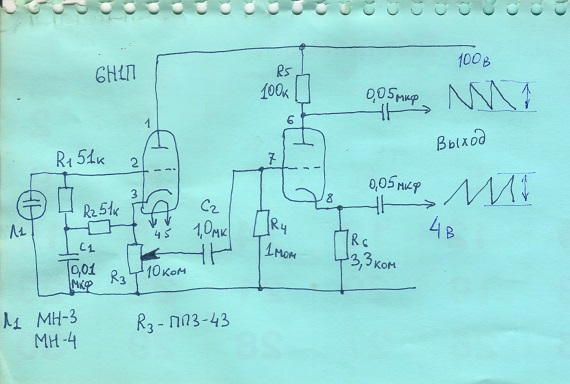 6Н1П
100В
R5
100к
0,05мкф
6
1
R1 51к
2
7
Выход
3
R2 51к
C2
1,0мк
8
0,05мкф
4 5
Л1
C1
0,01
мкф
R3
10ком
R4
1мом
R6
3,3ком
4В
Л1 МН-3
МН-4
R3 - ПП3-43